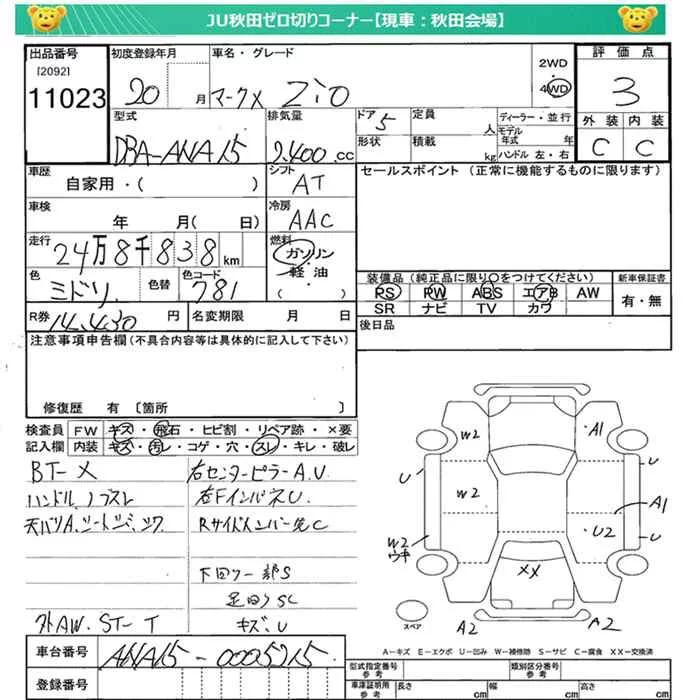 JU秋田ゼロ切りコーナー【現車：秋田会場】
出品番号
[2092]
11023
初度登録年月
20 月
車名・グレード
マークX Zio
2WD
4WD
評価点
3
外装 内装
C C
型式
DBA-ANA15
排気量
2.400 cc
ドア 5
形状
定員 人
積載 kg
ディーラー・並行
モデル年式 年
ハンドル 左・右
車歴
自家用・( )
シフト
AT
セールスポイント (正常に機能するものに限ります)
車検
年 月( 日)
冷房
AAC
走行
24万8千838 km
燃料
ガソリン・
軽油・
( )
色
ミドリ
色替
色コード
781
装備品(純正品に限り○をつけてください)
新車保証書
PS PW ABS エアB AW
SR ナビ TV カワ
有・無
R券 14.430 円
名変期限 月 日
後日品
注意事項申告欄(不具合内容等は具体的に記入して下さい)
修復歴 有 [箇所 ]
検査員
記入欄
FW キズ・飛石・ヒビ割・リペア跡・×要
内装 キズ・汚レ・コゲ・穴・スレ・キレ・破レ
BT-X
右センターピラーA.U
ハンドル、ノブスレ
右FインパネU.
天バリA.シートシミ、シワ
Rサイドメンバー先C
下回り一部S
足回りSC
外AW. ST-T
キズ.U
W2
A1
U
W2
U
A1
W2
ウキ
U2
U
XX
スペア
A2
A2
A-キズ E-エクボ U-凹み W-補修跡 S-サビ C-腐食 XX-交換済
車台番号
ANA15-0005715
登録番号
型式指定番号
参考
類別区分番号
参考
車庫証明用
参考
長さ cm
幅 cm
高さ cm